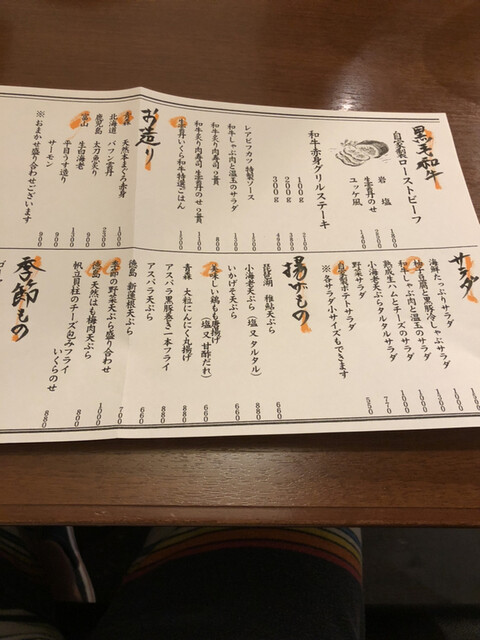 黒毛和牛
自家製ローストビーフ
岩塩
生雲丹のせ
ユッケ風
和牛赤身グリルステーキ
100g
200g
300g
レアビフカツ 特製ソース
和牛しゃぶ肉と温玉のサラダ
和牛炙り肉寿司2貫
和牛炙り肉寿司 生雲丹のせ2貫
生雲丹いくら和牛特選ごはん
お造り
青森 天然本まぐろ赤身
北海道 バフン雲丹
鹿児島 太刀魚炙り
富山 生白海老
平目うす造り
サーモン
※おまかせ盛り合わせございます
サラダ
海鮮たっぷりサラダ
柚子豆腐と黒豚冷しゃぶサラダ
和牛しゃぶ肉と温玉のサラダ
熟成生ハムとチーズのサラダ
小海老天ぷらタルタルサラダ 1000
野菜サラダ 770
自家製ポテトサラダ 550
※各サラダ小サイズもできます
揚げもの
琵琶湖 稚鮎天ぷら 660
小海老天ぷら（塩又タルタル） 880
いかげそ天ぷら 660
美味しい鶏もも唐揚げ（塩又甘酢だれ） 660
青森 大粒にんにく丸揚げ 880
アスパラ黒豚巻き一本フライ 880
アスパラ天ぷら 660
徳島 新蓮根天ぷら 700
季節の野菜天ぷら盛り合わせ 1000
徳島 天然はも梅肉天ぷら 880
帆立貝柱のチーズ包みフライ いくらのせ 880
季節もの